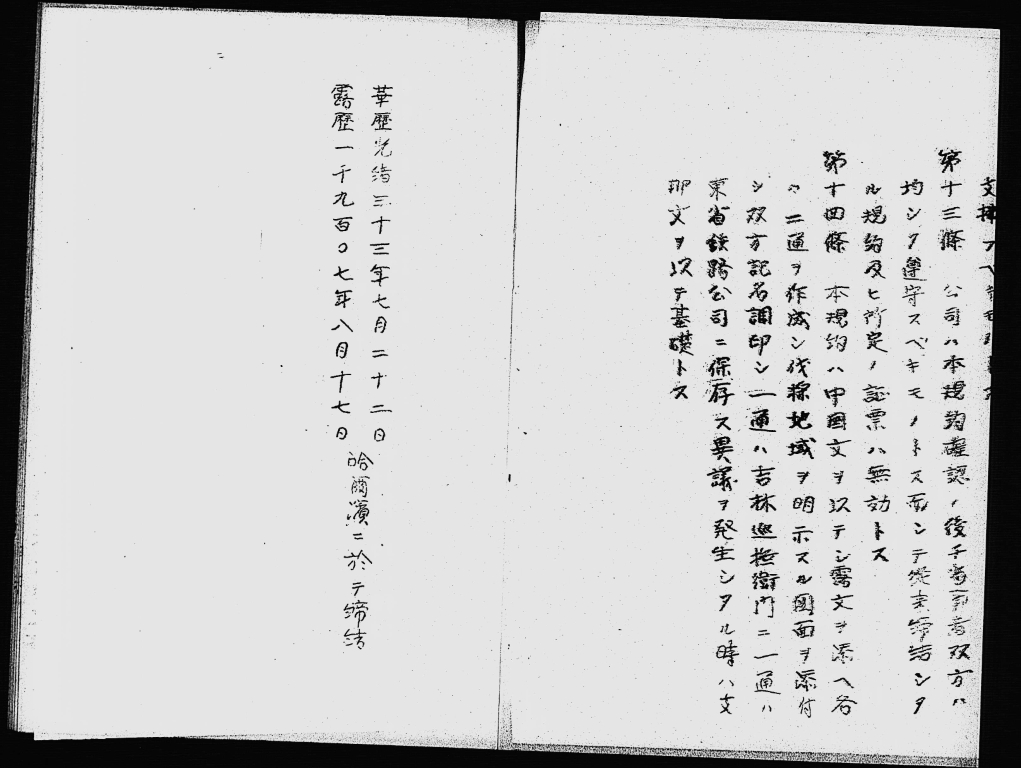 支揮フヘ
第十三條 公司ハ本規約確認ノ後チ当事者双方ハ
均シク遵守スベキモノトス而シテ従来締結シタ
ル規約及ヒ所定ノ証票ハ無効トス
第十四條 本規約ハ中国文ヲ以テシ露文ヲ添ヘ各
々二通ヲ作成シ伐採地域ヲ明示スル図面ヲ添付
シ双方記名調印シ一通ハ吉林巡撫衙門ニ一通ハ
東省鉄路公司ニ保存ス異議ヲ発生シタル時ハ支
那文ヲ以テ基礎トス
華歴光緒三十三年七月二十二日
露歴一千九百〇七年八月十七日
哈爾濱ニ於テ締結